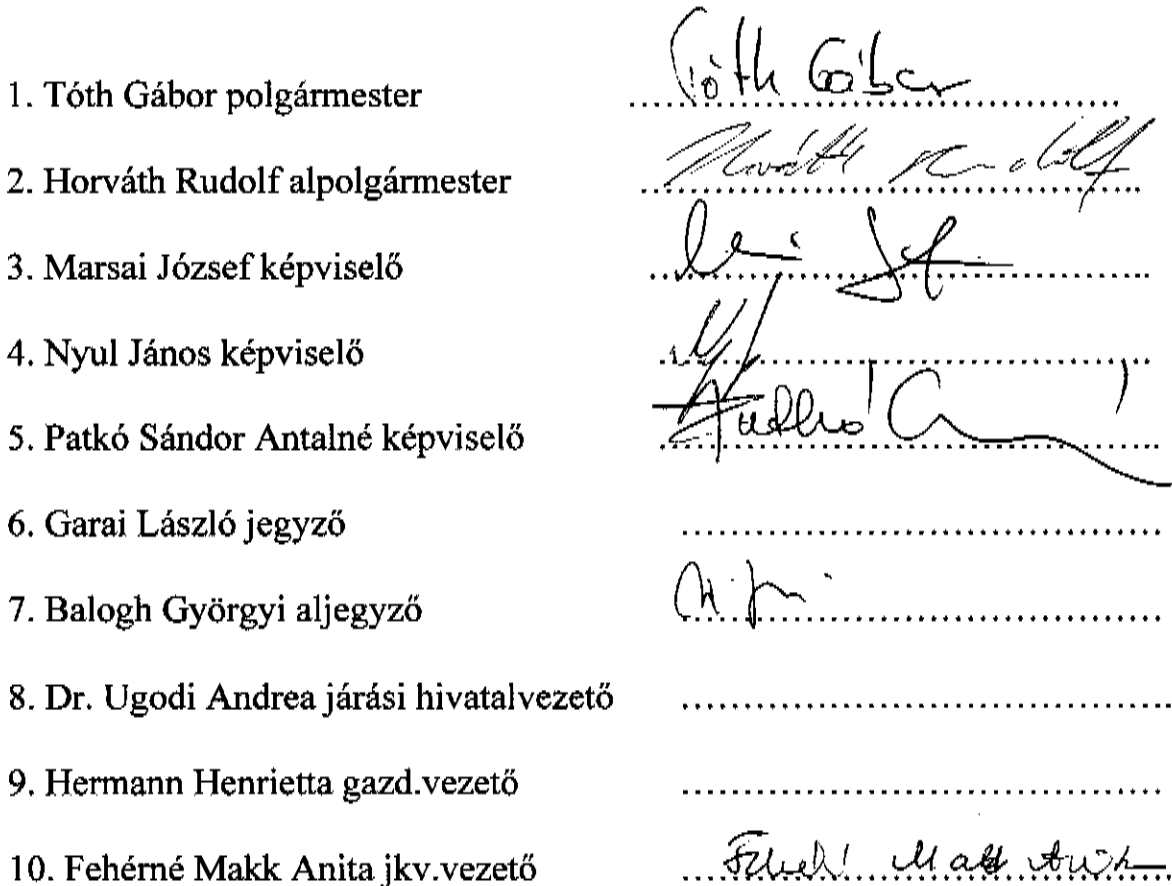 1. Tóth Gábor polgármester Tóth Gábor
2. Horváth Rudolf alpolgármester Horváth Rudolf
3. Marsai József képviselő
4. Nyul János képviselő
5. Patkó Sándor Antalné képviselő
6. Garai László jegyző
7. Balogh Györgyi aljegyző
8. Dr. Ugodi Andrea járási hivatalvezető
9. Hermann Henrietta gazd.vezető
10. Fehérné Makk Anita jkv.vezető Makk Anita